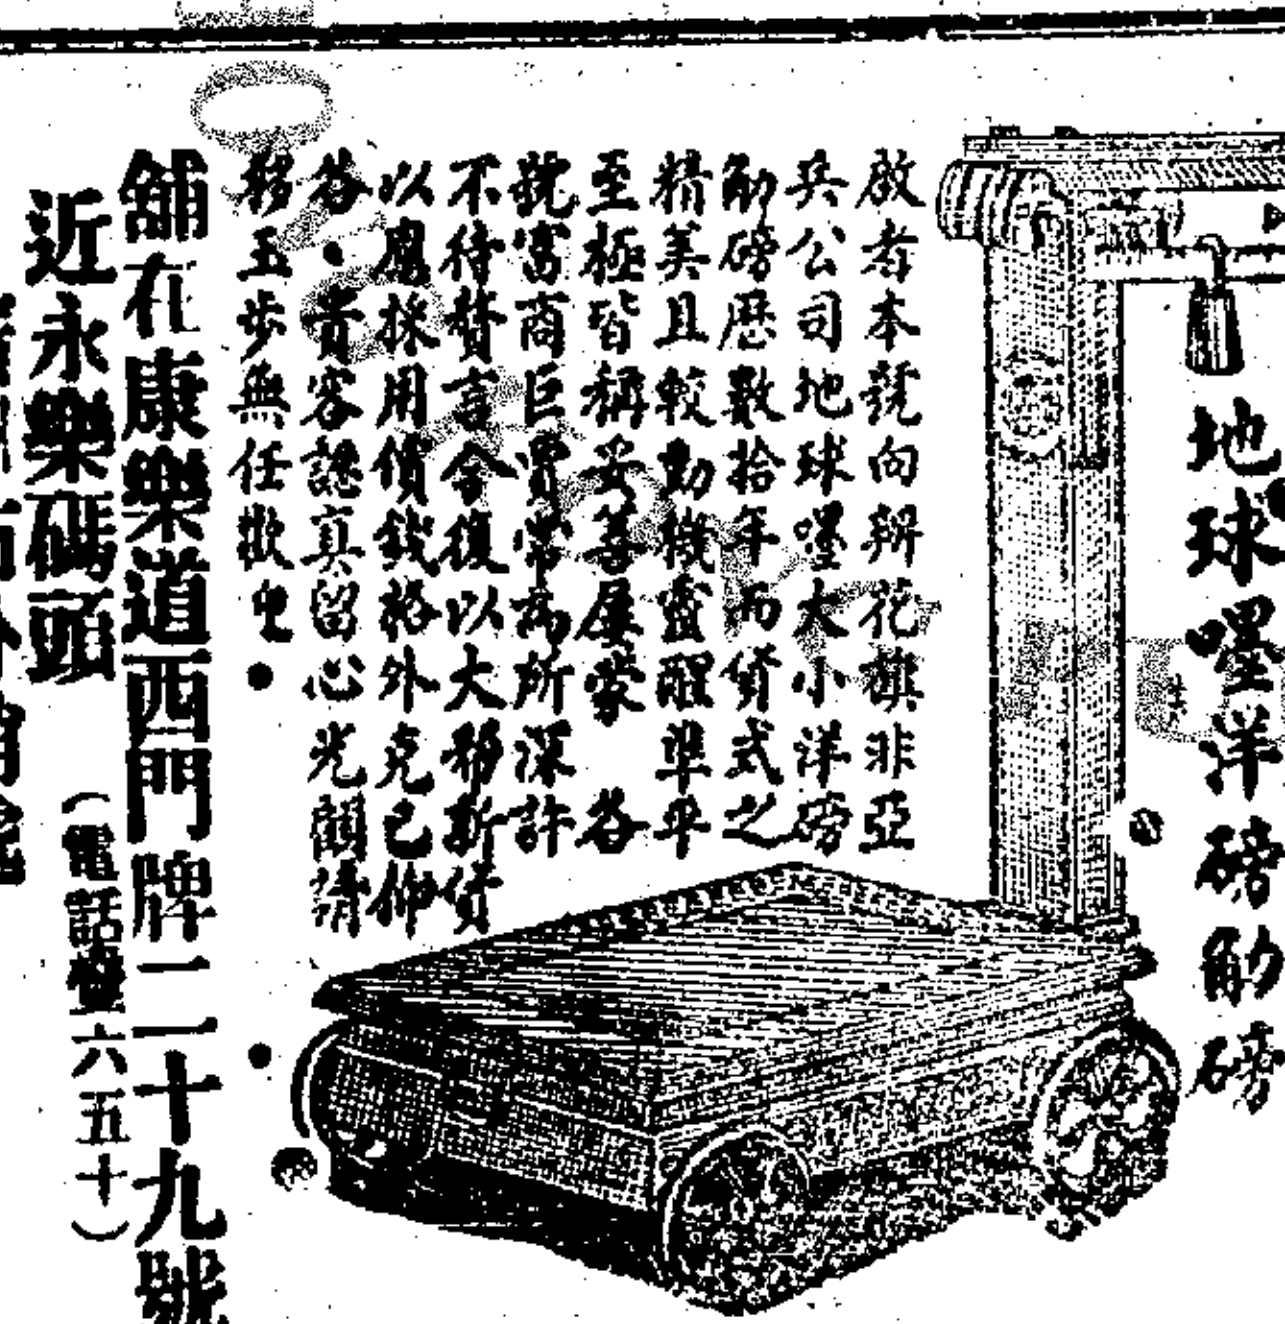 地球嘜洋磅觔磅
啟者本號向辦花旗非亞
兵公司地球嘜大小洋磅
觔磅歷數拾年而貨式之
精美且較動機靈醒準平
至極皆稱妥善屢蒙　各
號富商巨賈常為所深許
不待贅言今復以大夥斯貨
以應採用價錢格外克己仰
各・貴客認真留心光顧請
移玉步無任歡迎
舖在康樂道西門牌二十九號
近永樂碼頭
（電話壹六五十）